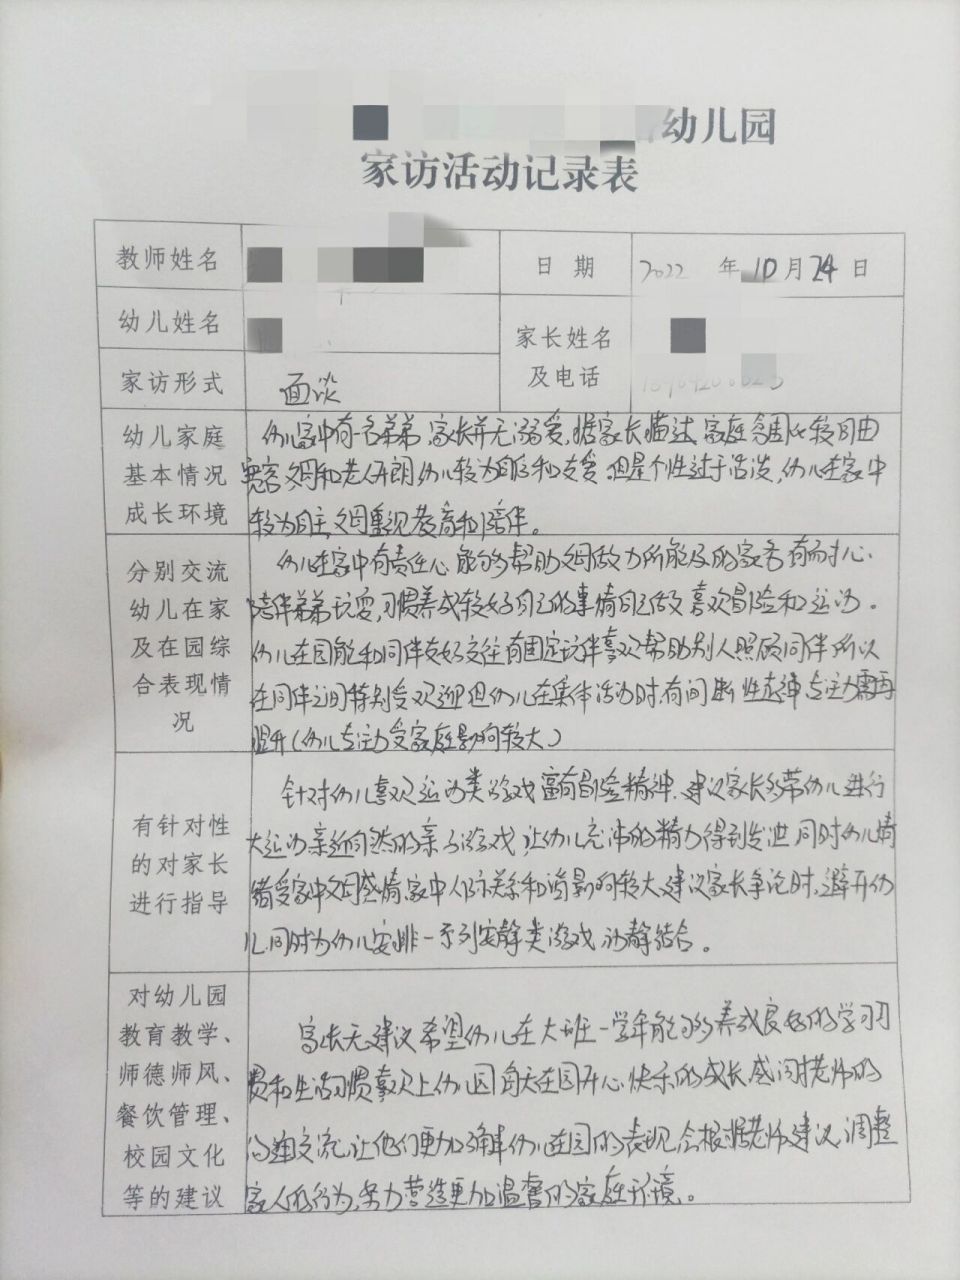 幼儿园
家访活动记录表
教师姓名
日 期
2022 年 10 月 24 日
幼儿姓名
家长姓名
及电话
家访形式
面谈
幼儿家庭
基本情况
成长环境
幼儿家中有一名弟弟 家长并无溺爱,据家长描述,家庭氛围比较自由
宽容 父母和老人开朗 幼儿较为自信和友爱.但是个性过于活泼,幼儿在家中
较为自主,父母重视教育和陪伴。
分别交流
幼儿在家
及在园综
合表现情
况
幼儿在家中有责任心,能够帮助父母做力所能及的家务 有耐心.
陪伴弟弟玩耍,习惯养成较好自己的事情自己做 喜欢冒险和运动。
幼儿在园能和同伴友好交往 有固定玩伴喜欢帮助别人照顾同伴 所以
在同伴之间特别受欢迎 但幼儿在集体活动时,有间断性走神 专注力需再
提升(幼儿专注力受家庭影响较大)
有针对性
的对家长
进行指导
针对幼儿喜欢运动类游戏 富有冒险精神.建议家长多带幼儿进行
大运动亲近自然的亲子游戏,让幼儿充沛的精力得到发泄 同时幼儿情
绪受家中父母感情,家中人际关系和谐影响较大,建议家长争论时,避开幼
儿,同时为幼儿安排一系列安静类游戏,动静结合。
对幼儿园
教育教学、
师德师风、
餐饮管理、
校园文化
等的建议
家长无建议 希望幼儿在大班一学年能够养成良好的学习习
惯和生活习惯喜欢上幼儿园 每天在园开心 快乐的成长,感谢老师的
沟通交流,让他们更加了解幼儿在园的表现,会根据老师建议,调整
家人的行为,努力营造更加温馨的家庭环境。